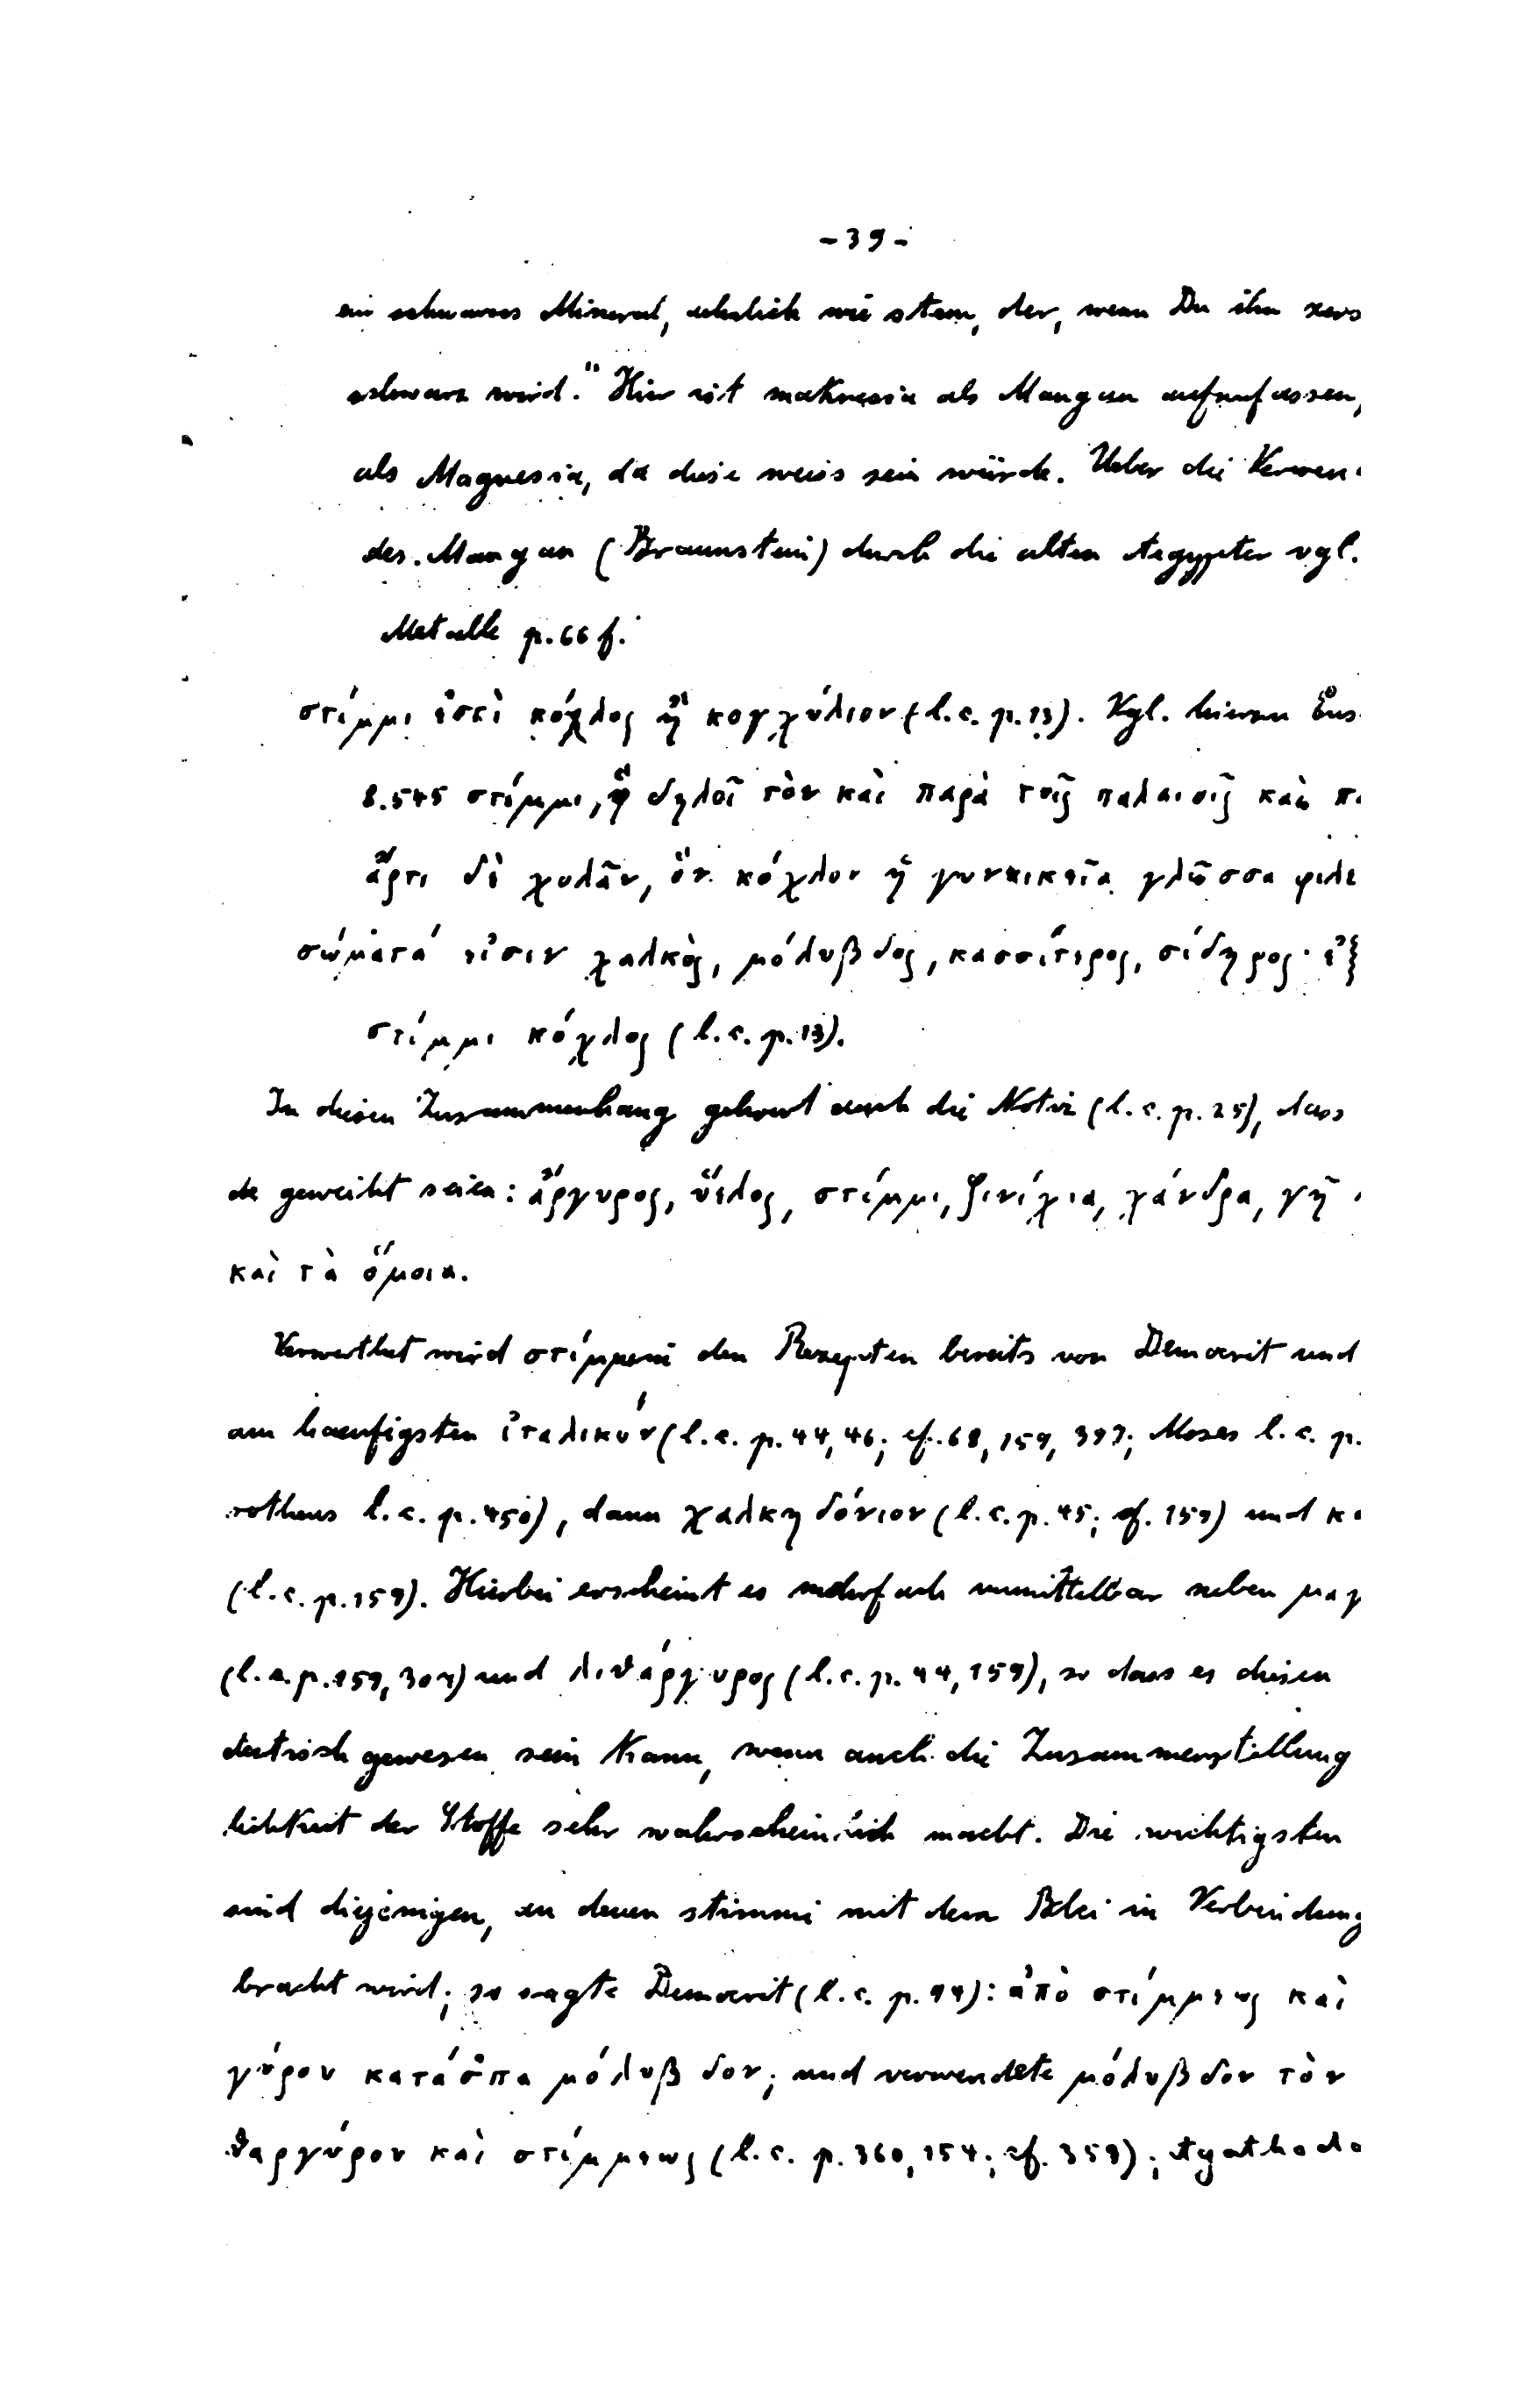 - 39 -
ein schwarzes Mineral, aehnlich wie stem, der, wenn Du ihn zers
schwarz wird." Hier ist maknesia als Mangan aufzufassen,
als Magnesia, da diese weiss sein würde. Ueber die Verwen
des Mangan (Braunstein) durch die alten Aegypter vgl.
Metalle p. 66 f.
στίμμι ἐστὶ κόχλος ἢ κογχύλιον (l. c. p. 13). Vgl. hierzu Eus
8.545 στίμμι, ᾧ δηλοῖ τὸν καὶ παρὰ τοῖς παλαιοῖς καὶ π
ἄρτι δὲ χολᾶν, ὃν κόχλον ἡ γυναικεῖα γλῶσσα φιλε
σώματά εἰσιν χαλκὸς, μόλυβδος, κασσίτερος, σίδηρος· ἐξ
στίμμι κόχλος (l. c. p. 13).
In diesen Zusammenhang gehoert auch die Notiz (l. c. p. 25), dass
de geweiht seien: ἄργυρος, ὕελος, στίμμι, ζινίχια, χάνδρα, γῆ
καὶ τὰ ὅμοια.
Verwerthet wird στίμμι in den Rezepten bereits von Democrit und
am haeufigsten ἰταλικόν (l. c. p. 44, 46; cf. 68, 159, ; Moses l. c. p.
rotheus l. c. p. 450), dann χαλκηδόνιον (l. c. p. 45; cf. 159) und κ
(l. c. p. 159). Hierbei erscheint es mehrfach unmittelbar neben μαγ
(l. c. p. 159, 307) und λιθάργυρος (l. c. p. 44, 159), so dass es diesen
dentisch gewesen sein kann, wenn auch die Zusammenstellung
lichkeit der Stoffe sehr wahrscheinlich macht. Die wichtigsten
sind diejenigen, in denen stimmi mit dem Blei in Verbindung
bracht wird; so sagte Democrit (l. c. p. 44): ἀπὸ στίμμεως καὶ
γύρου κατάσπα μόλυβδον; und verwendete μόλυβδον τὸν
θαργύρου καὶ στίμμεως (l. c. p. 360, 154; cf. 359); Agathoda